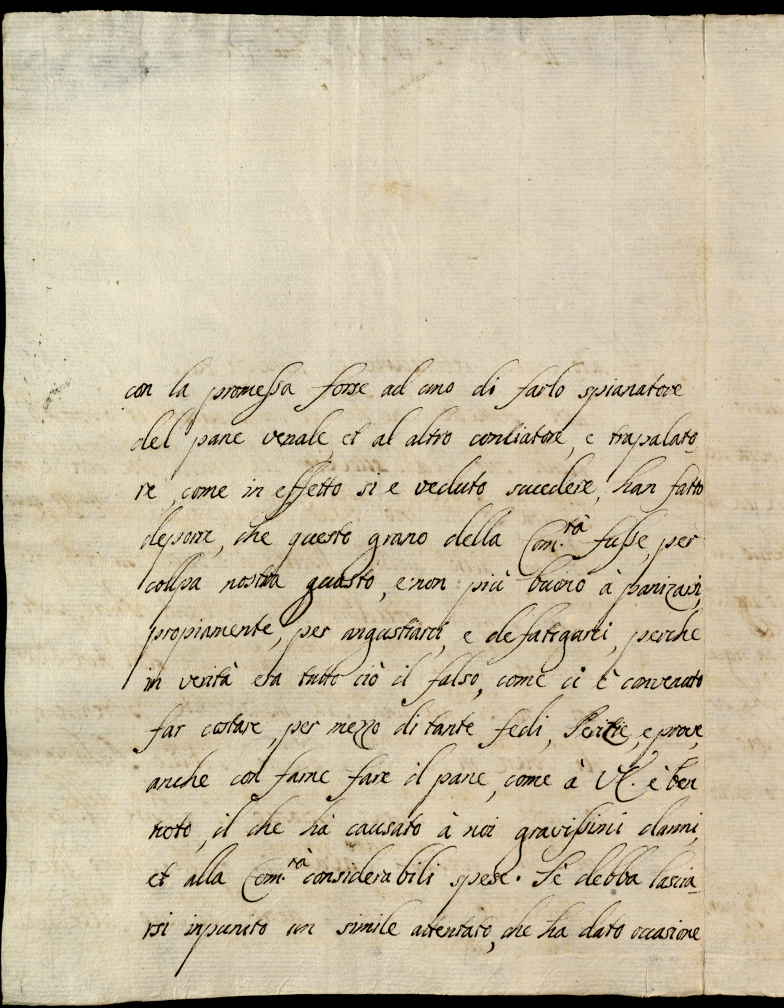 con la promessa forse ad uno di farlo spianatore
del pane venale et al altro conciatore, e trapalato-
re, come in effetto si e veduto succedere, han fatto
deporre, che questo grano della Com.tà fusse, per
colpa nostra guasto, e non più buono à panizarsi,
propiamente, per angustiarci, e defatigarci, perche
in verità era tutto ciò il falso, come ci è convenuto
far costare, per mezzo di tante fedi, Peritie, e prove,
anche con farne fare il pane, come à V.S. è ben
noto, il che hà causato à noi gravissimi danni,
et alla Com.tà considerabili spese. Se debba lascia-
rsi inpunito un simile attentato, che ha dato occasione